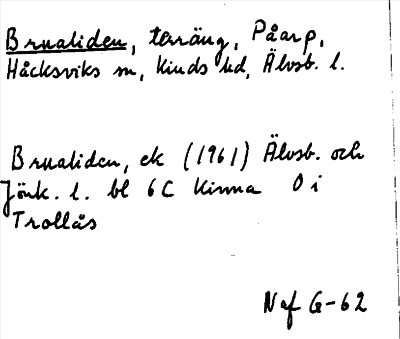 Brualiden, terräng, Påarp,
Håcksviks sn, Kinds hd, Älvsb. l.
Brualiden, ek (1961) Älvsb. och
Jönk. l. bl 6C Kinna 0 i
Trollås
Naf G-62